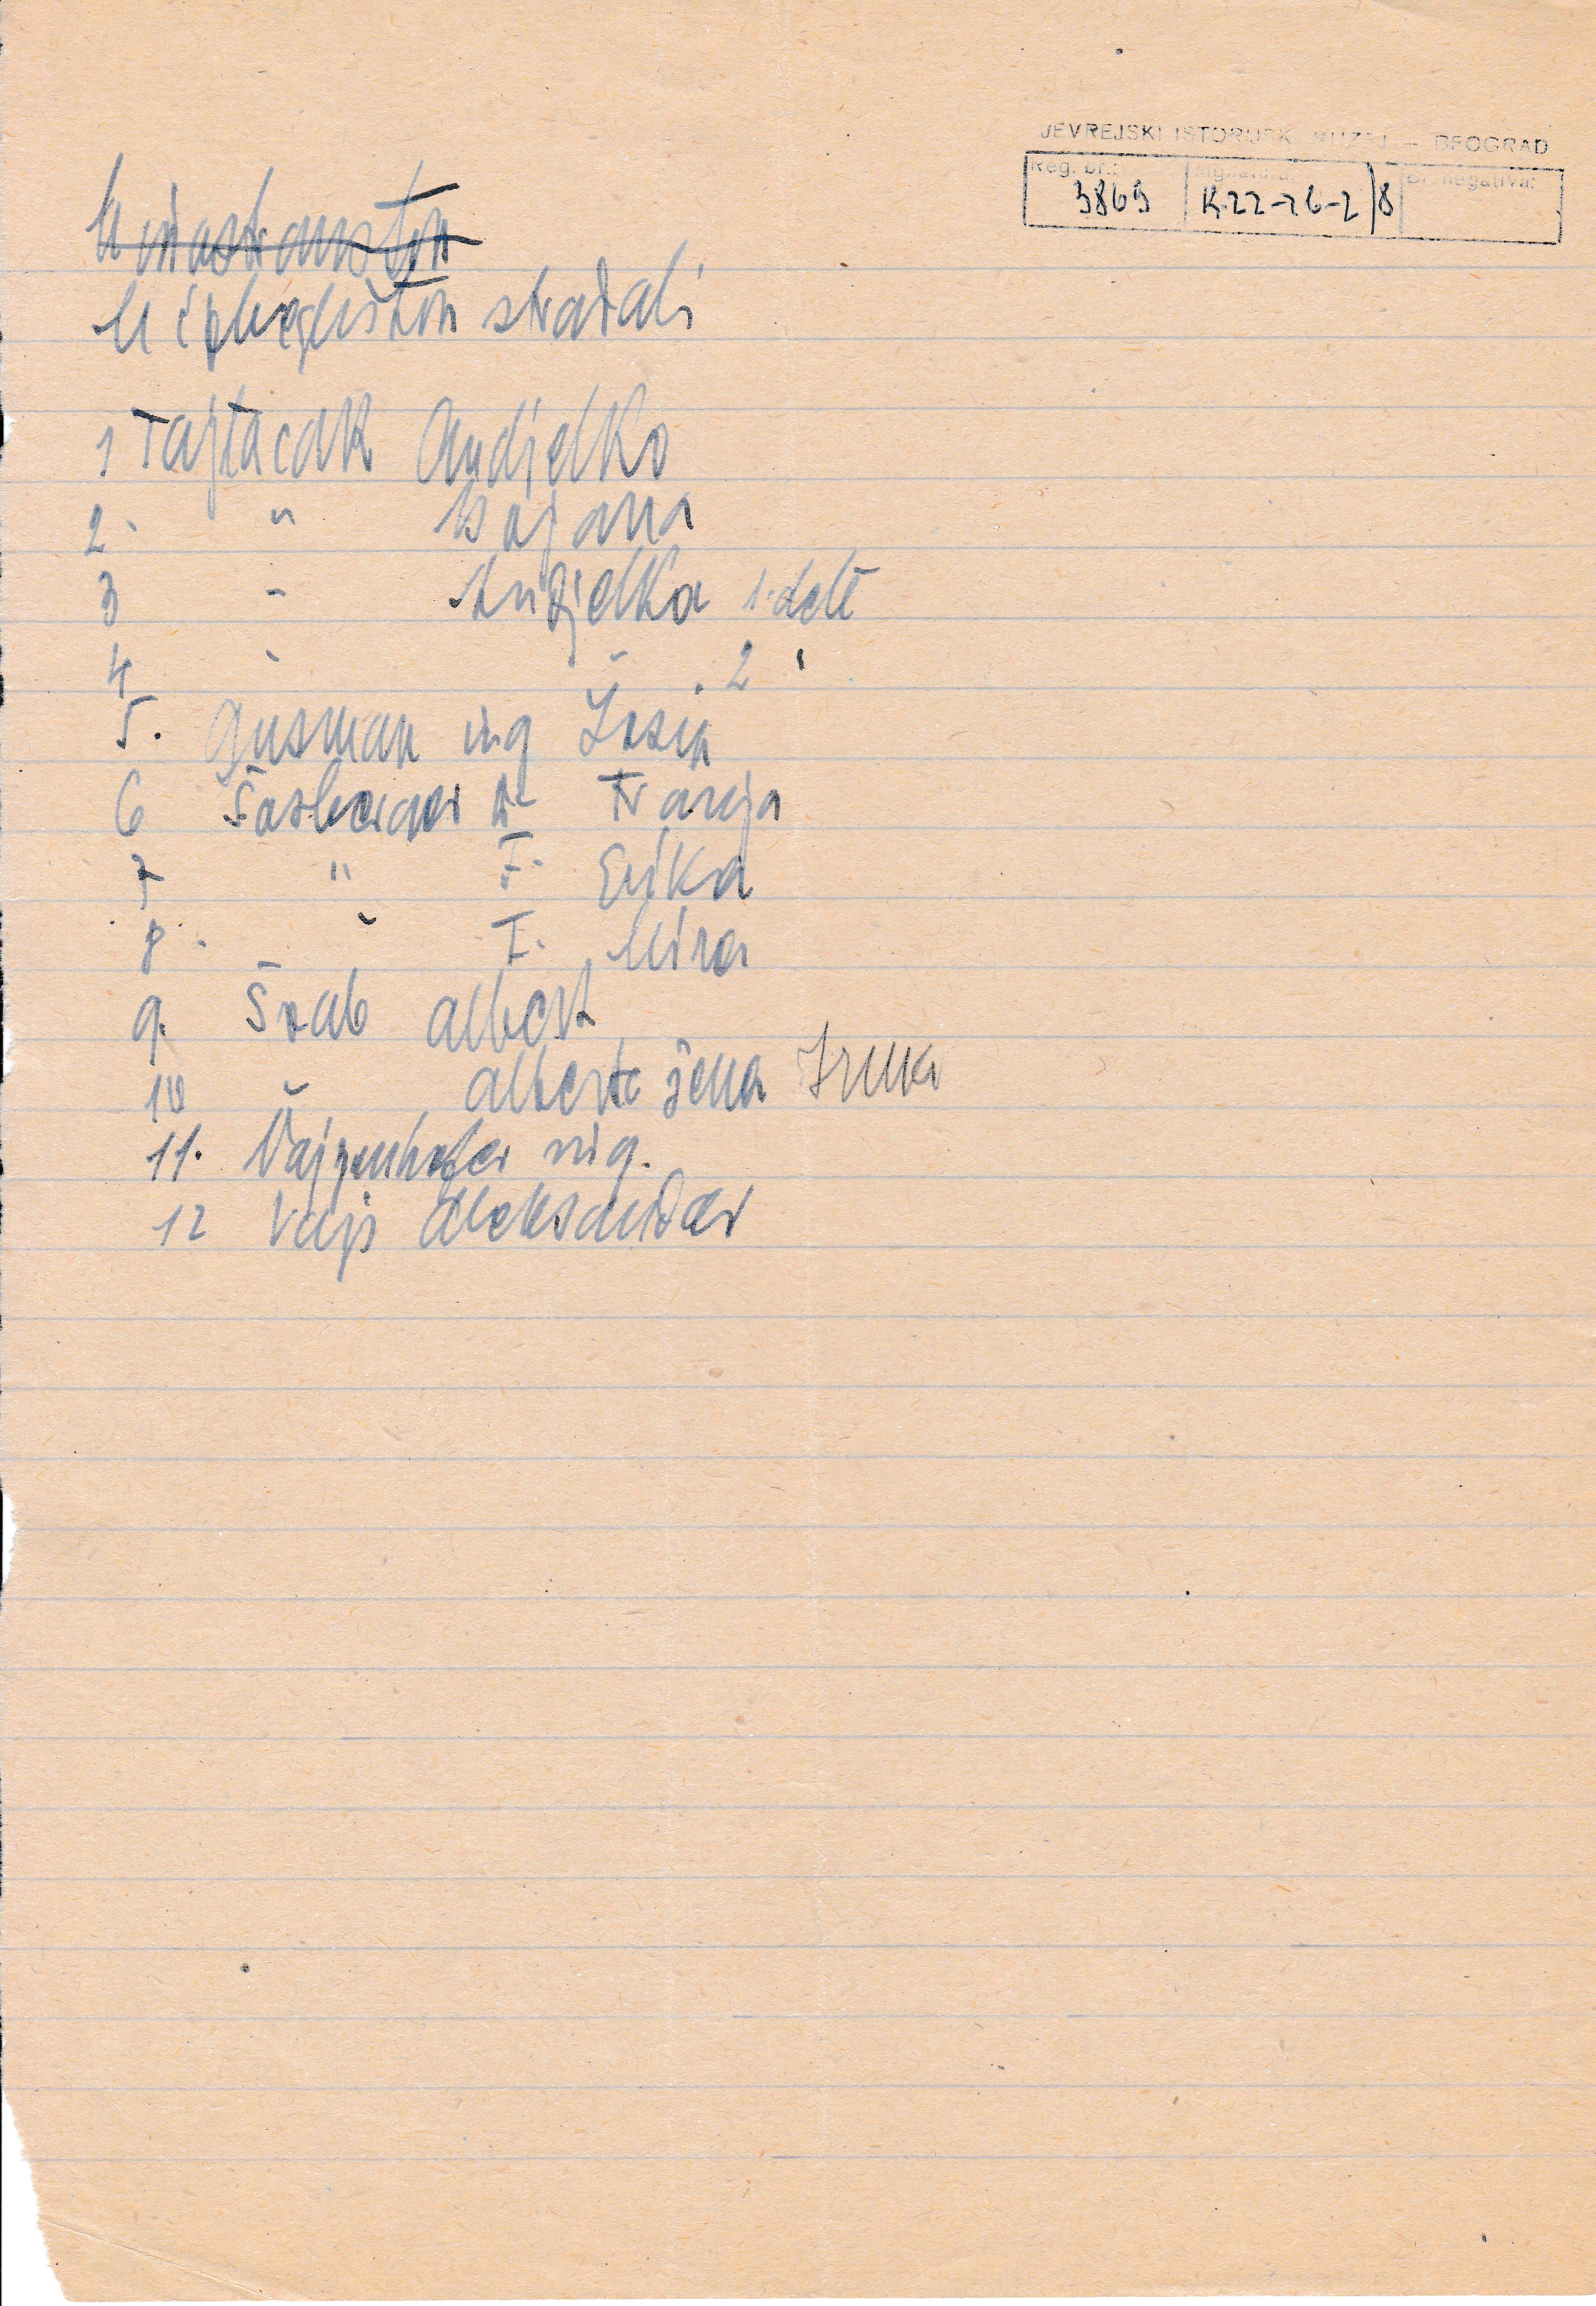 JEVREJSKI ISTORIJSKI MUZEJ – BEOGRAD
Reg. br.: Signatura: Br. negativa:
3869 K-22-2-6-2/8
U inostranstvu
U izbeglištvu stradali
1 Tajtacak Andjelko
2. " Bojana
3 " Andjelka 1. dete
4 " " 2 "
5. Gusman ing Josip
6 Šosberger Dr Franja
7 " F. Erika
8. " I. Mira
9. Švab Albert
10 " Alberta žena Irma
11. Vajzenhofer ing.
12 Vajs Aleksandar